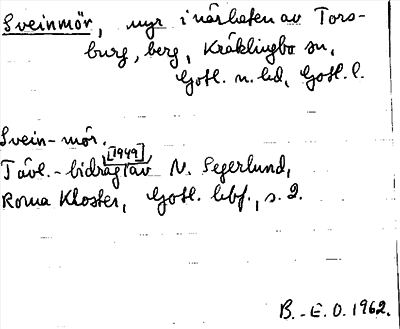 Sveinmör, myr i närheten av Tors-
burg, berg, Kräklingbo sn,
Gotl. n. hd, Gotl. l.
Svein-mör.
[1949]
Tävl.-bidrag av N. Segerlund,
Roma Kloster, Gotl. lbf., s. 2.
B.-E.O. 1962.